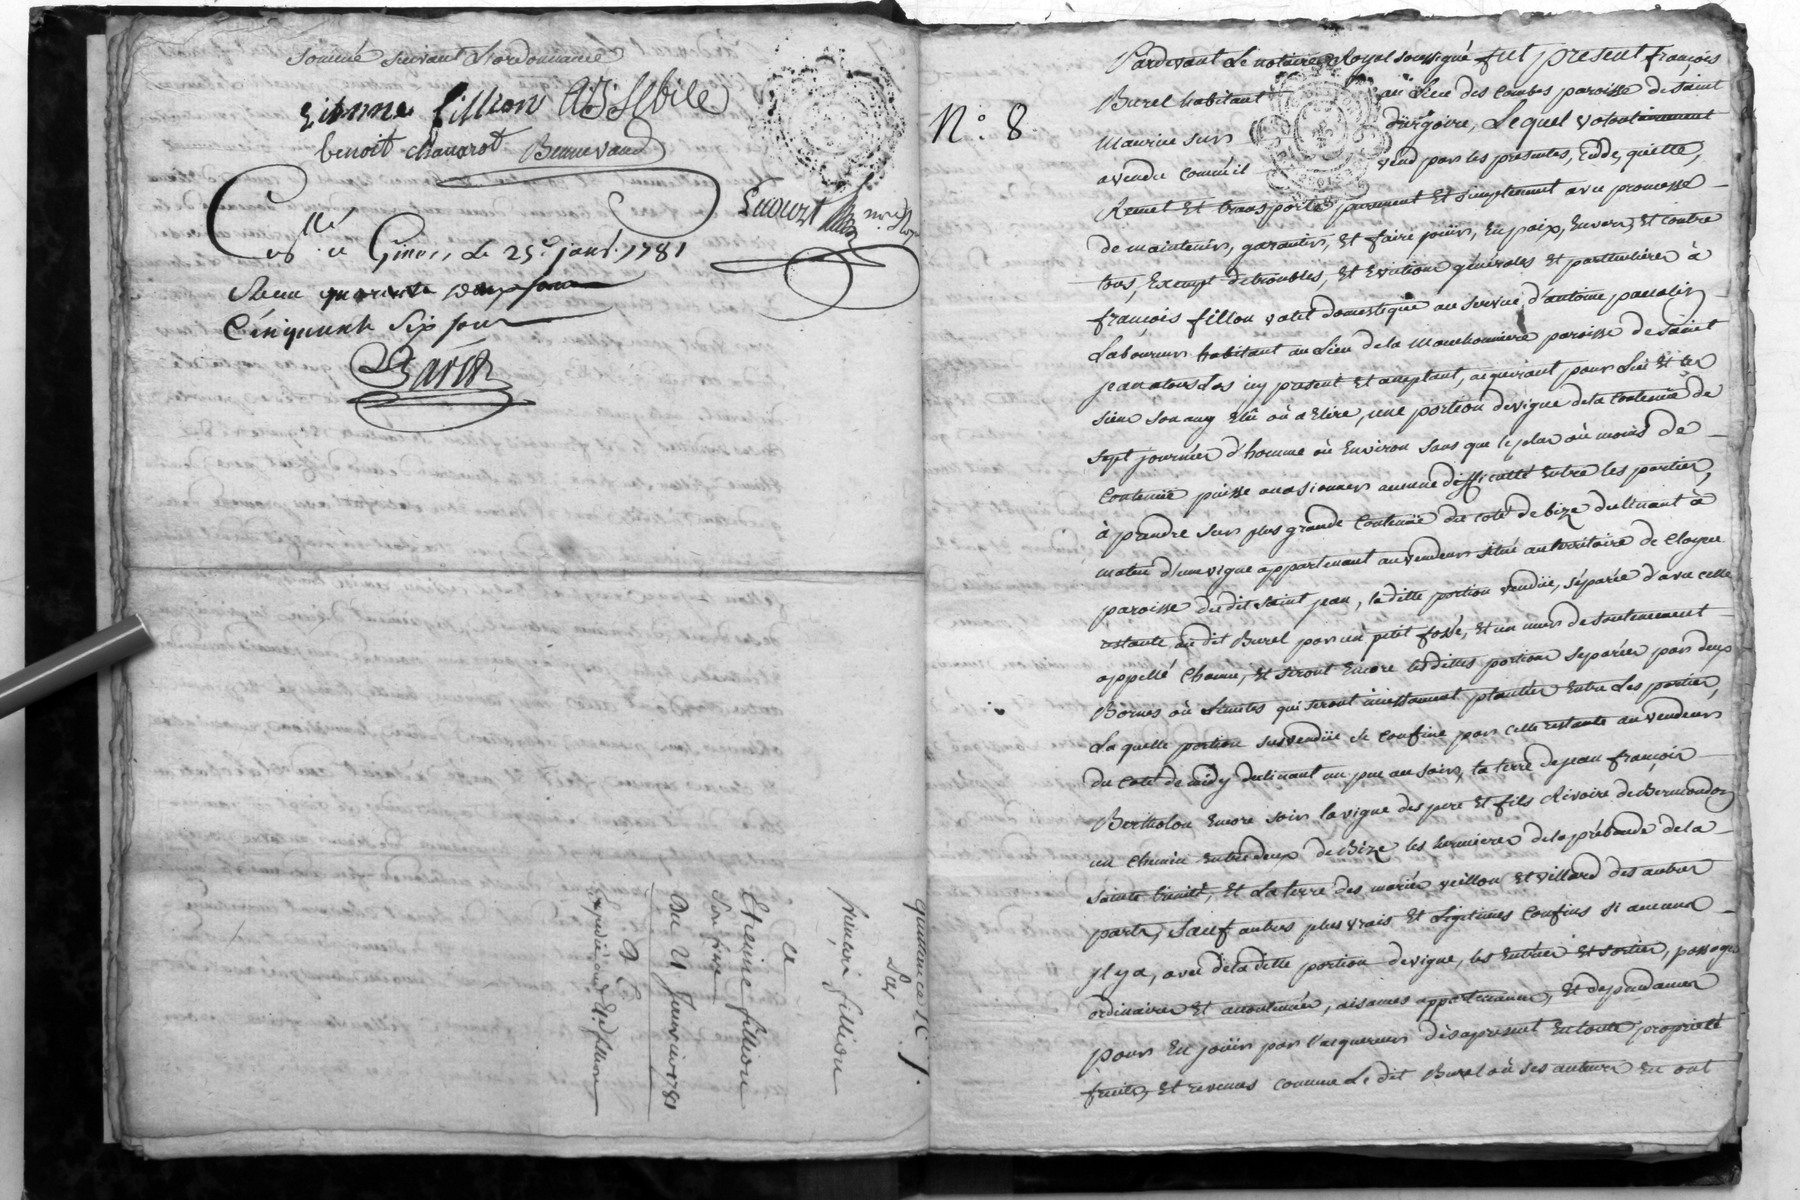 sommé suivant L'ordonnance
Etienne fillion
benoit chavarot Bennevaud
à Givors, Le 25e janv. 1781
Cinquante six sous
quittance
Par
françois fillion
a
Etienne fillion
son frere
Du 21 Janvier 1781
Expedié aud. Et. fillion
N.° 8
Pardevant Le notaire Royal soussigné fut present françois
Burel habitant au Lieu des Combes paroisse de Saint
Maurice sur dargoire, Lequel volontairement
a vendu comme il vend par les presentes, cedde, quitte,
Remet Et transporte purement Et simplement avec promesse
de maintenir, garantir, Et faire jouir, En paix, Envers, Et contre
tous, Exempt de troubles, Et Evictions générales Et particulieres à
françois fillon valet domestique au service d'antoine
Laboureur habitant au Lieu de la paroisse de Saint
jean a touslas icy present Et acceptant, acquerant pour Lui Et les
siens son amy Elû où a Elire, une portion de vigne de la Contenüe de
sept journées d'homme où Environ sans que le plus où moins de
Contenüe puisse occasionner aucune difficulté Entre les parties,
à prandre sur plus grande Contenüe du coté de bize declinant à
matin d'une vigne appartenant au vendeur situé au territoire de
paroisse du dit Saint jean, la ditte portion vendüe, séparée d'avec celle
restante au dit Burel par un petit fossé, Et un mur de soutenement
appellé Chaume, Et seront Encore lesdittes portions separées par deux
Bornes où Limites qui seront incessament plantées Entre Les parties,
La quelle portion susvendüe se confine par celle restante au vendeur
du coté de midy declinant un peu au soir, la terre de jean françois
Bertholon Encore soir la vigne des pere Et fils Rivoire de
un chemin Entre deux de Bize les hermieres de la prébande de la
Sainte trinité, Et La terre des mariés veillon Et villard des autres
parts, Sauf autres plus vrais Et Légitimes Confins si aucuns
y'l y a, avec de la ditte portion de vigne, les Entrées Et sorties, passages
ordinaires Et accoutumées, aisances appartenances, Et dependances
pour En jouir par l'acquereur désapresent En toute propriété
fruits, Et revenus comme Le dit Burel où ses auteurs En ont